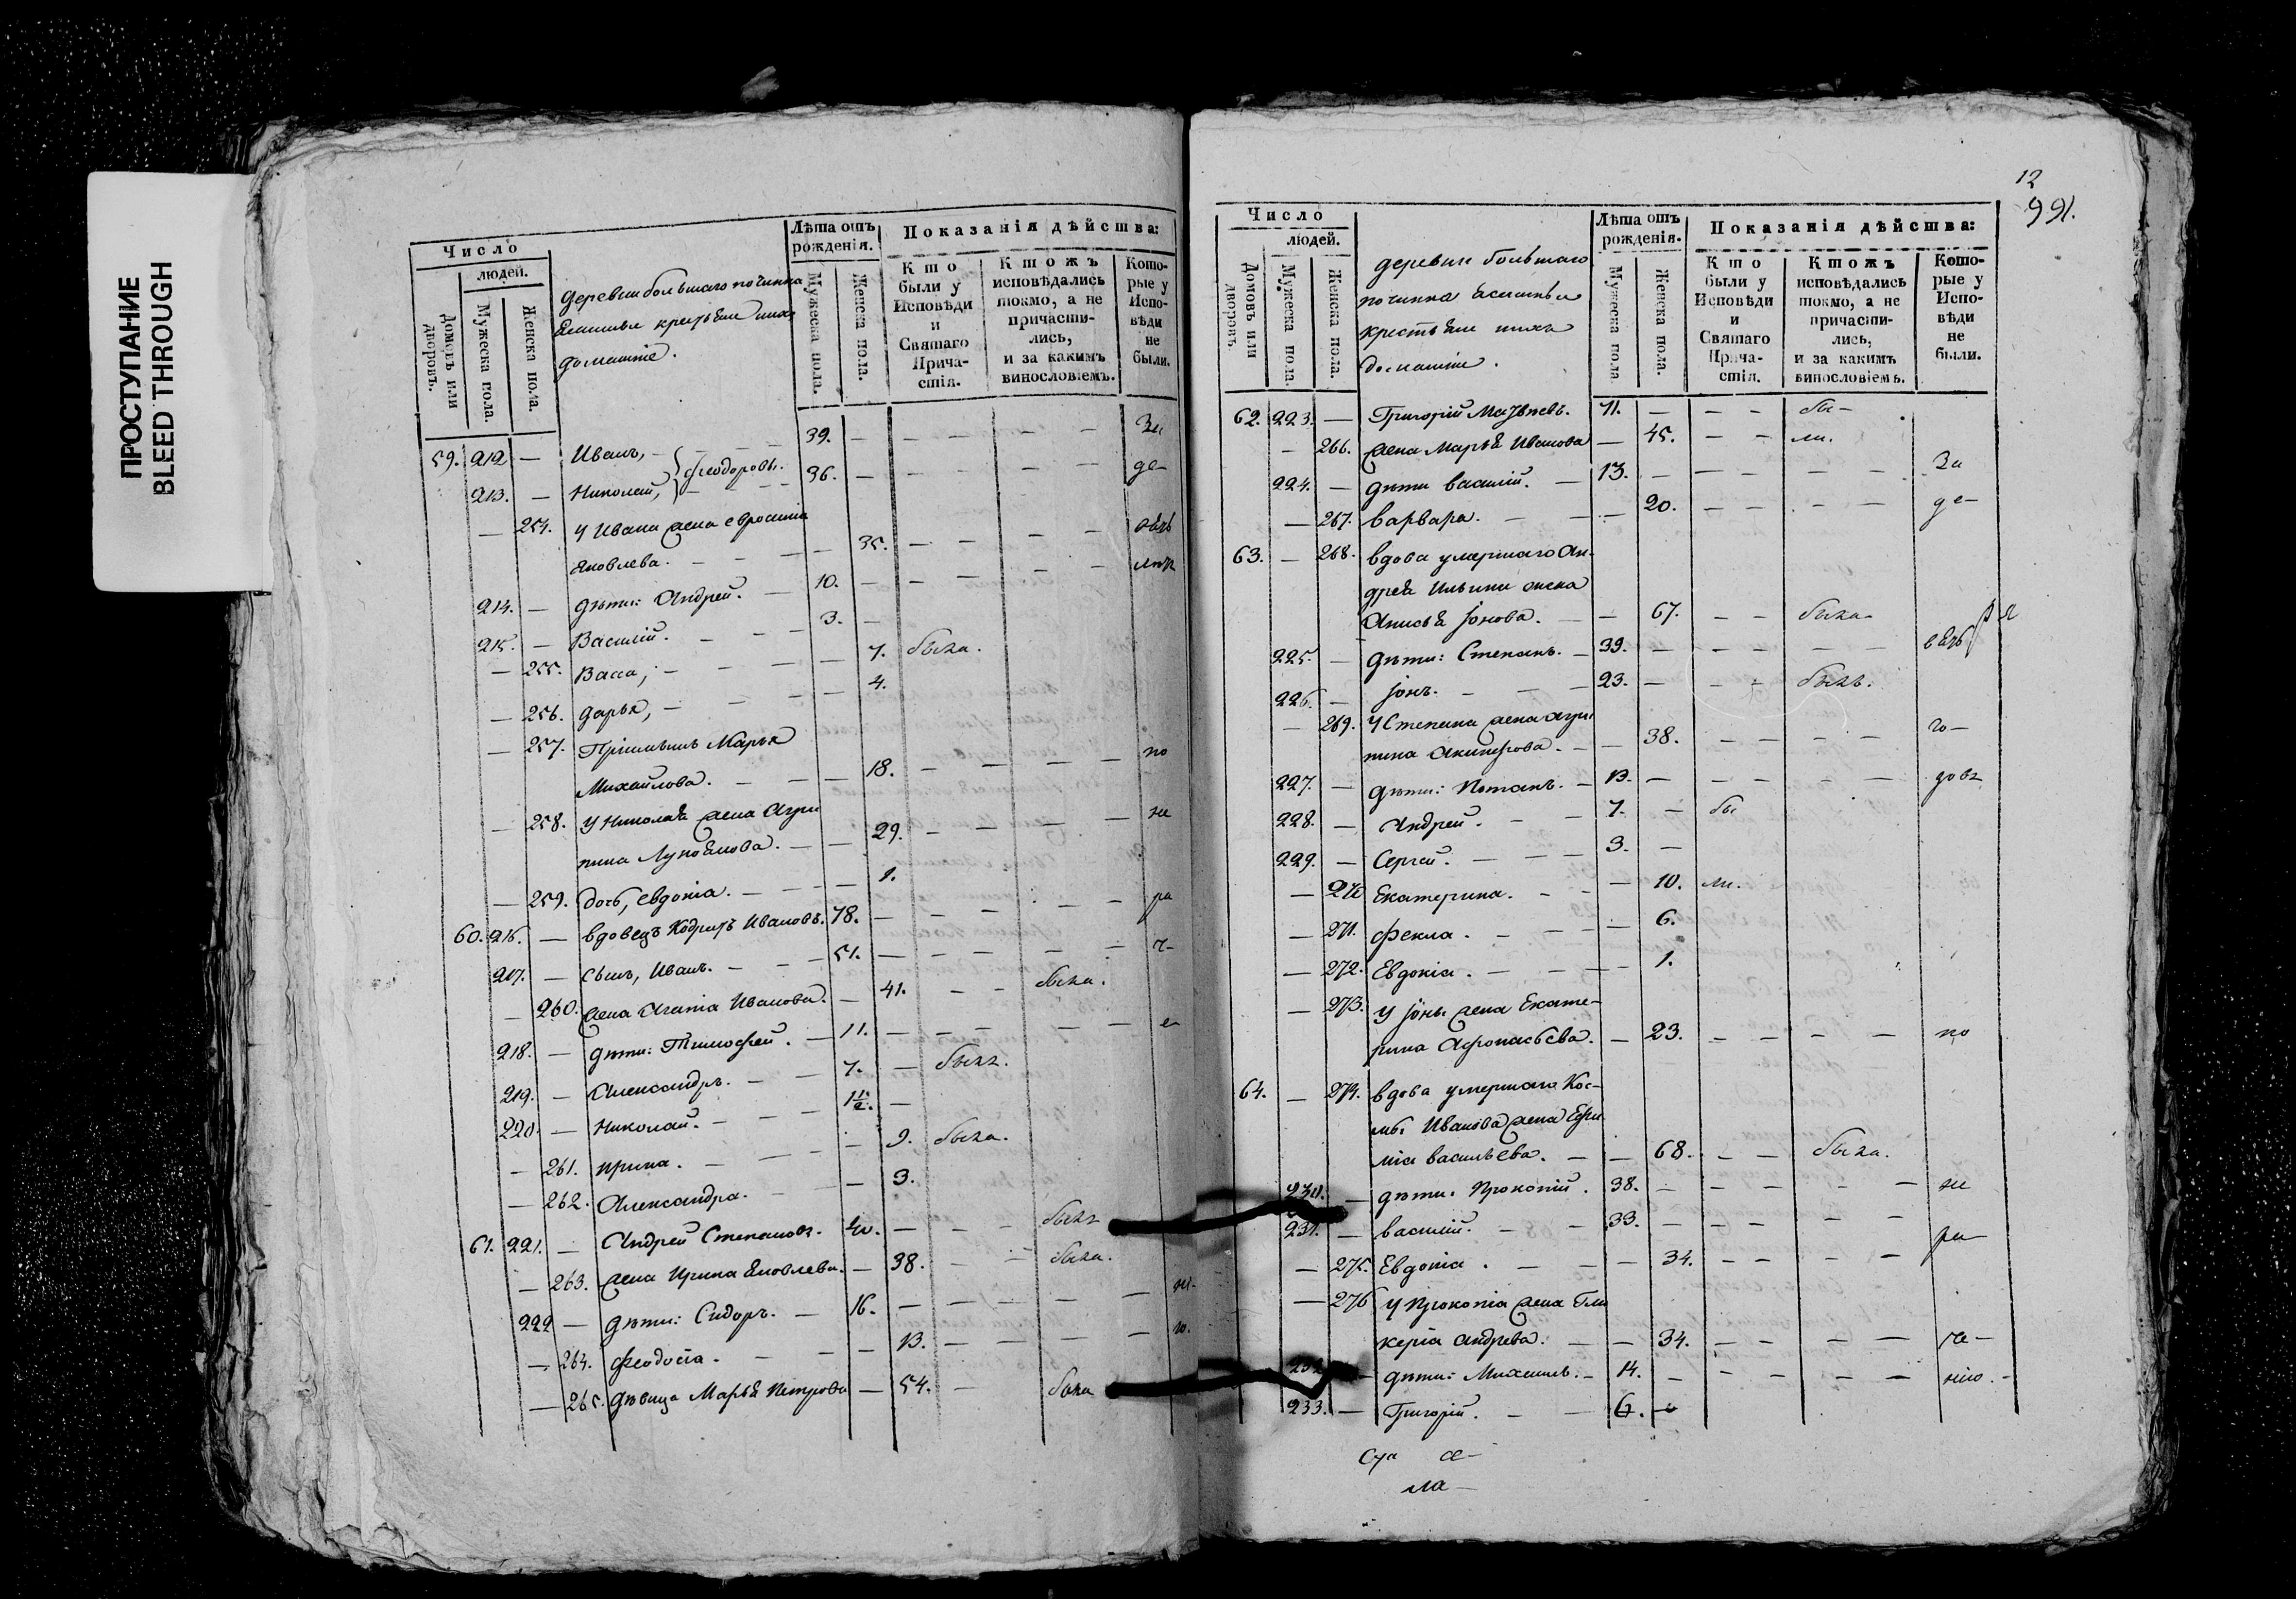 ПРОСТУПАНИЕ
BLEED THROUGH
Число
людей.
Домовъ или дворовъ.
Мужеска пола.
Женска пола.
деревни большаго починка
крестьяне ихъ
домашніе.
Лѣта отъ рожденія.
Мужеска пола.
Женска пола.
Показанія дѣйства:
Кто были у Исповѣди и Святаго Причастія.
Ктожъ исповѣдались токмо, а не причастились, и за какимъ винословіемъ.
Которые у Исповѣди не были.
59. 212 — Иванъ, — 39. — — — — — За
213. — Николай, } Феодоровы. 36. — де-
— 254. у Ивана жена Евросинia
Яковлева. — — 35. — — — —
214. — дѣти: Андрей. — 10. — — — — —
215. — Василій. — — — 3. —
— 255. Васса; — — — 7. была.
— 256. дарья, — — — 4.
— 257. Марья
Михайлова. — — — 18. — — — — по
— 258. у Николая жена Агри
пина — — 29. — — — — не
— 259. дочь, Евдокіа. — — — 1.
60. 216. — вдовецъ Иванъ. 78. — — — — ра
217. — сынъ, Иванъ. — — 51. — — — — —
— 260. жена Агапіа Иванова. — 41. — — была.
218. — дѣти: Тимофей. — 11. — — — — —
219. — Александръ. — — 7. — былъ.
220. — Николай. — — — 1 1/2. —
— 261. ирина. — — — — 9. была.
— 262. Александра. — — 3.
61. 221. — Андрей Степановъ. 40. — — — былъ
— 263. жена Ирина Яковлева. — 38. — — была.
222 — дѣти: Сидоръ. — 16. — — — — —
— 264. феодосіа. — — — 13. — — — —
— 265. дѣвица Марья Петрова — 54. — была
12
991.
Число
людей.
Домовъ или дворовъ.
Мужеска пола.
Женска пола.
деревни большаго
починка
крестьяне ихъ
домашніи.
Лѣта отъ рожденія.
Мужеска пола
Женска пола.
Показанія дѣйства:
Кто были у Исповѣди и Святаго Причастія.
Ктожъ исповѣдались токмо, а не причастились, и за какимъ винословіемъ.
Которые у Исповѣди не были.
62. 223. — Григорій Матвѣевъ. 71. — — — бы-
— 266. жена Марья Иванова — 45. — — ли.
224. — дѣти василій. — 13. — — — — — За
— 267. варвара. — — — 20. — — — — де-
63. — 268. вдова умершаго Ан-
дрея Ильина жена
Анисья Іонова. — — 67. — — была
225. — дѣти: Степанъ. — 39. — — — — —
226. — Іонъ. — — — 23. — — — былъ.
— 269. у Степана жена агри
пина — — 38. — — — — го-
227. — дѣти: Потапъ. — 13. — — — — — довъ
228. — Андрей. — — 7. — бы
229. — Сергей. — — — 3. —
— 270 Екатерина. — — — 10. ли.
— 271. фекла. — — — 6.
— 272. Евдокіа. — — — 1.
— 273. у Іоны жена Екате-
рина Афонасьева. — 23. — — — — по
64. — 274. вдова умершаго Кос-
мы Иванова жена Ефи
міа васильева. — — 68. — — была.
230. — дѣти: Прокопій. 38. — — — — — не
231. — василій. — — 33. — — — — —
— 275. Евдокіа. — — — 34. — — — — ра-
— 276 у Прокопіа жена Гли
керіа андрева. — — 34. — — — —
232 — дѣти: Михаилъ. — 14. — — — — — нію.
233. — Григорій. — — 6. —